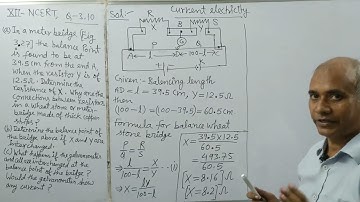 XII- NCERT, Q-3.10
(a) In a meter bridge [Fig
3.27] the balance point
is found to be at
39.5 cm from the end A,
when the resistor Y is of
12.5Ω. Determine the
resistance of X. Why are the
connections between resistors
in a wheatstone or meter
bridge made of thick copper
strips?
(b) Determine the balance point of
the bridge above if X and Y are
interchanged.
(c) What happens if the galvanometer
and cell are interchanged at the
balance point of the bridge?
Would the galvanometer show
any current?
Sol:-
Current electricity
R
B
S
X
Y
G
P
Q
A
l
D
100-l
C
Given- Balancing length
AD = l = 39.5 cm, Y = 12.5Ω
then
(100-l) = (100-39.5) = 60.5 cm
formula for balance wheat
stone bridge
P/Q = R/S
⇒ l/100-l = X/Y -(i)
⇒ X = lY/100-l
X = 39.5×12.5/60.5
= 493.75/60.5
X = 8.16 Ω
X = 8.2 Ω